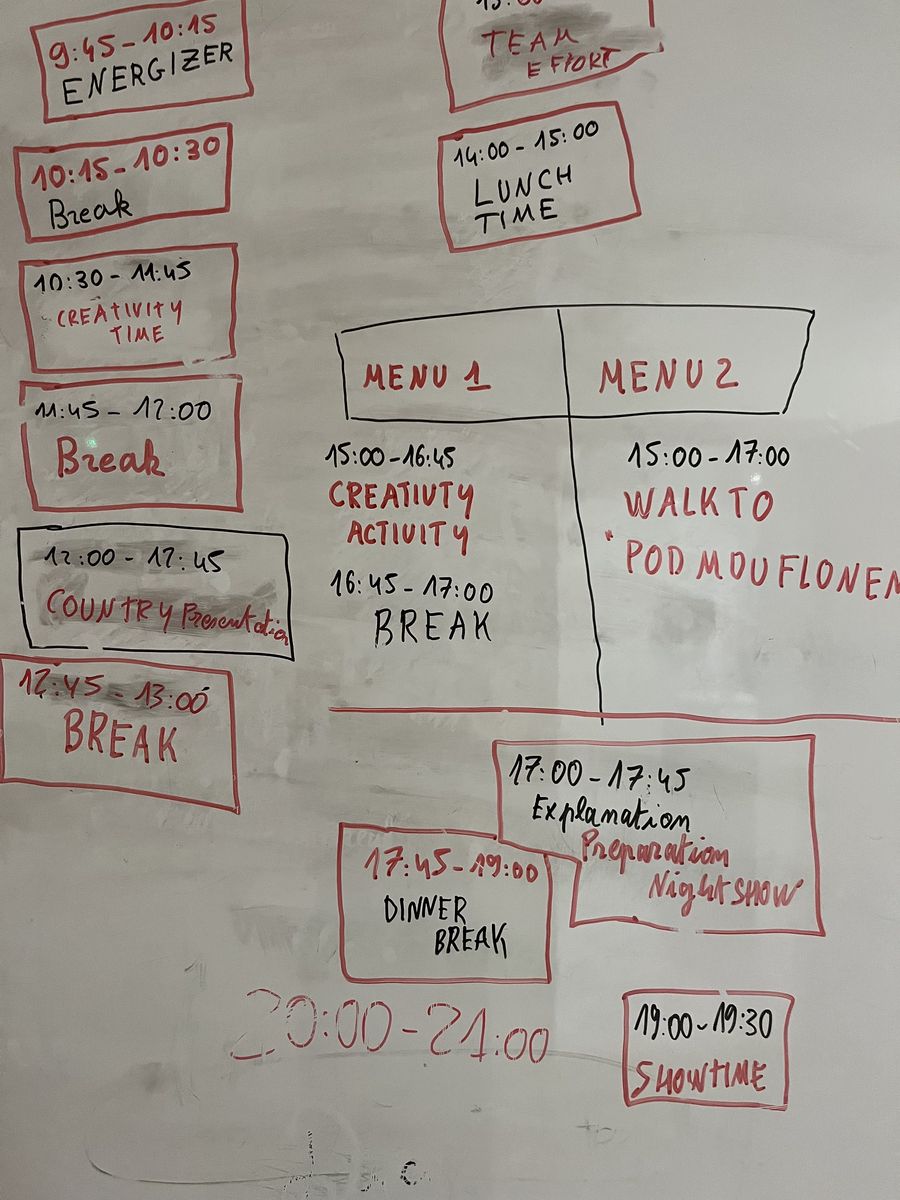 9:45-10:15
ENERGIZER
10:15-10:30
Break
10:30-11:45
CREATIVITY
TIME
11:45-12:00
Break
12:00-12:45
COUNTRY Presentation
12:45-13:00
BREAK
TEAM
EFFORT
14:00-15:00
LUNCH
TIME
MENU 1
MENU 2
15:00-16:45
CREATIVTY
ACTIVITY
16:45-17:00
BREAK
15:00-17:00
WALK TO
POD MOUFLONEM
17:00-17:45
Explanation
Preparation
Night SHOW
17:45-19:00
DINNER
BREAK
19:00-19:30
SHOWTIME
20:00-21:00